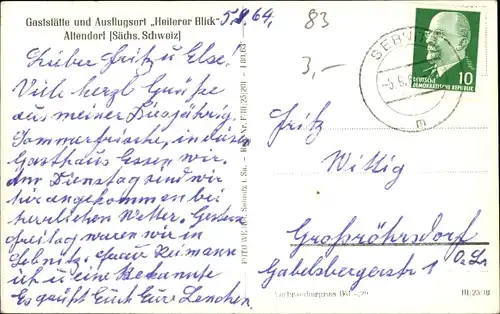 Gaststätte und Ausflugsort „Heiterer Blick"
Altendorf [Sächs. Schweiz]
5.9.64,
Lieber Fritz u Else!
Viele herzl Grüße
aus meiner Diesjährig.
Sommerfrische, in diesem
Gasthaus Essen wir.
Am Dienstag sind wir
hier angekommen bei
herrlichen Wetter. Gestern
freitag waren wir in
Sebnitz. frau Reimann
ich u eine Bekannte
Es grüßt Euch Eure Lenchen.
83
3,-
SEBNITZ
DEUTSCHE
DEMOKRATISCHE REPUBLIK
10
Fritz
Wittig
Großröhrsdorf
Gabelsbergerstr 1
III/23/8